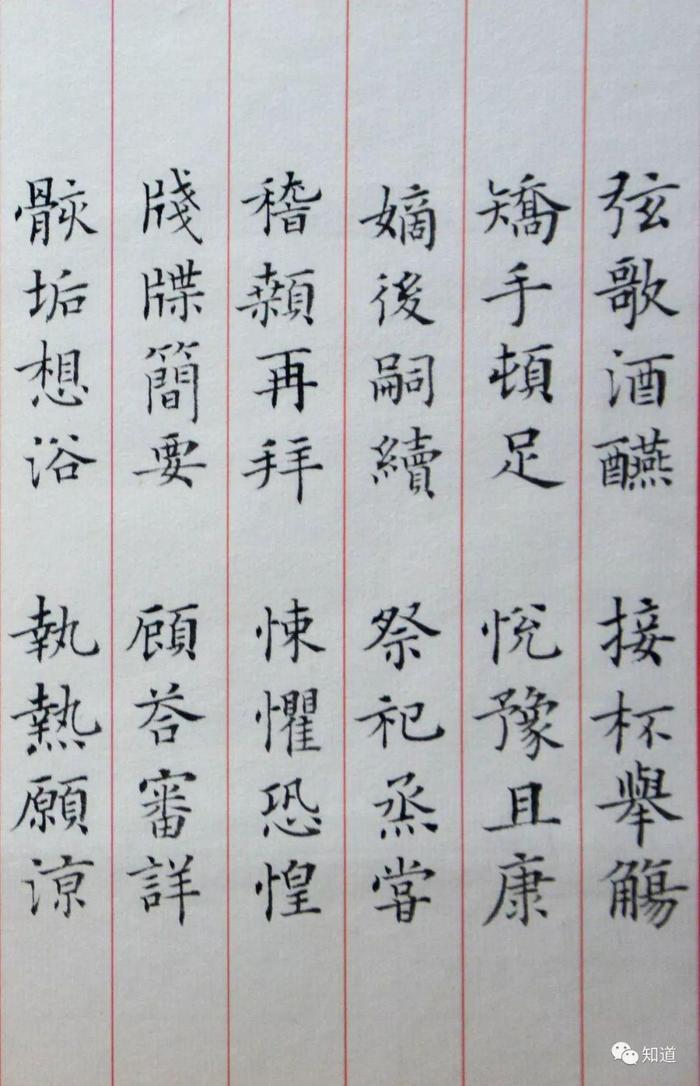 弦歌酒醼 接杯舉觴
矯手頓足 悅豫且康
嫡後嗣續 祭祀烝嘗
稽顙再拜 悚懼恐惶
牋牒簡要 顧荅審詳
骸垢想浴 執熱願涼
知道